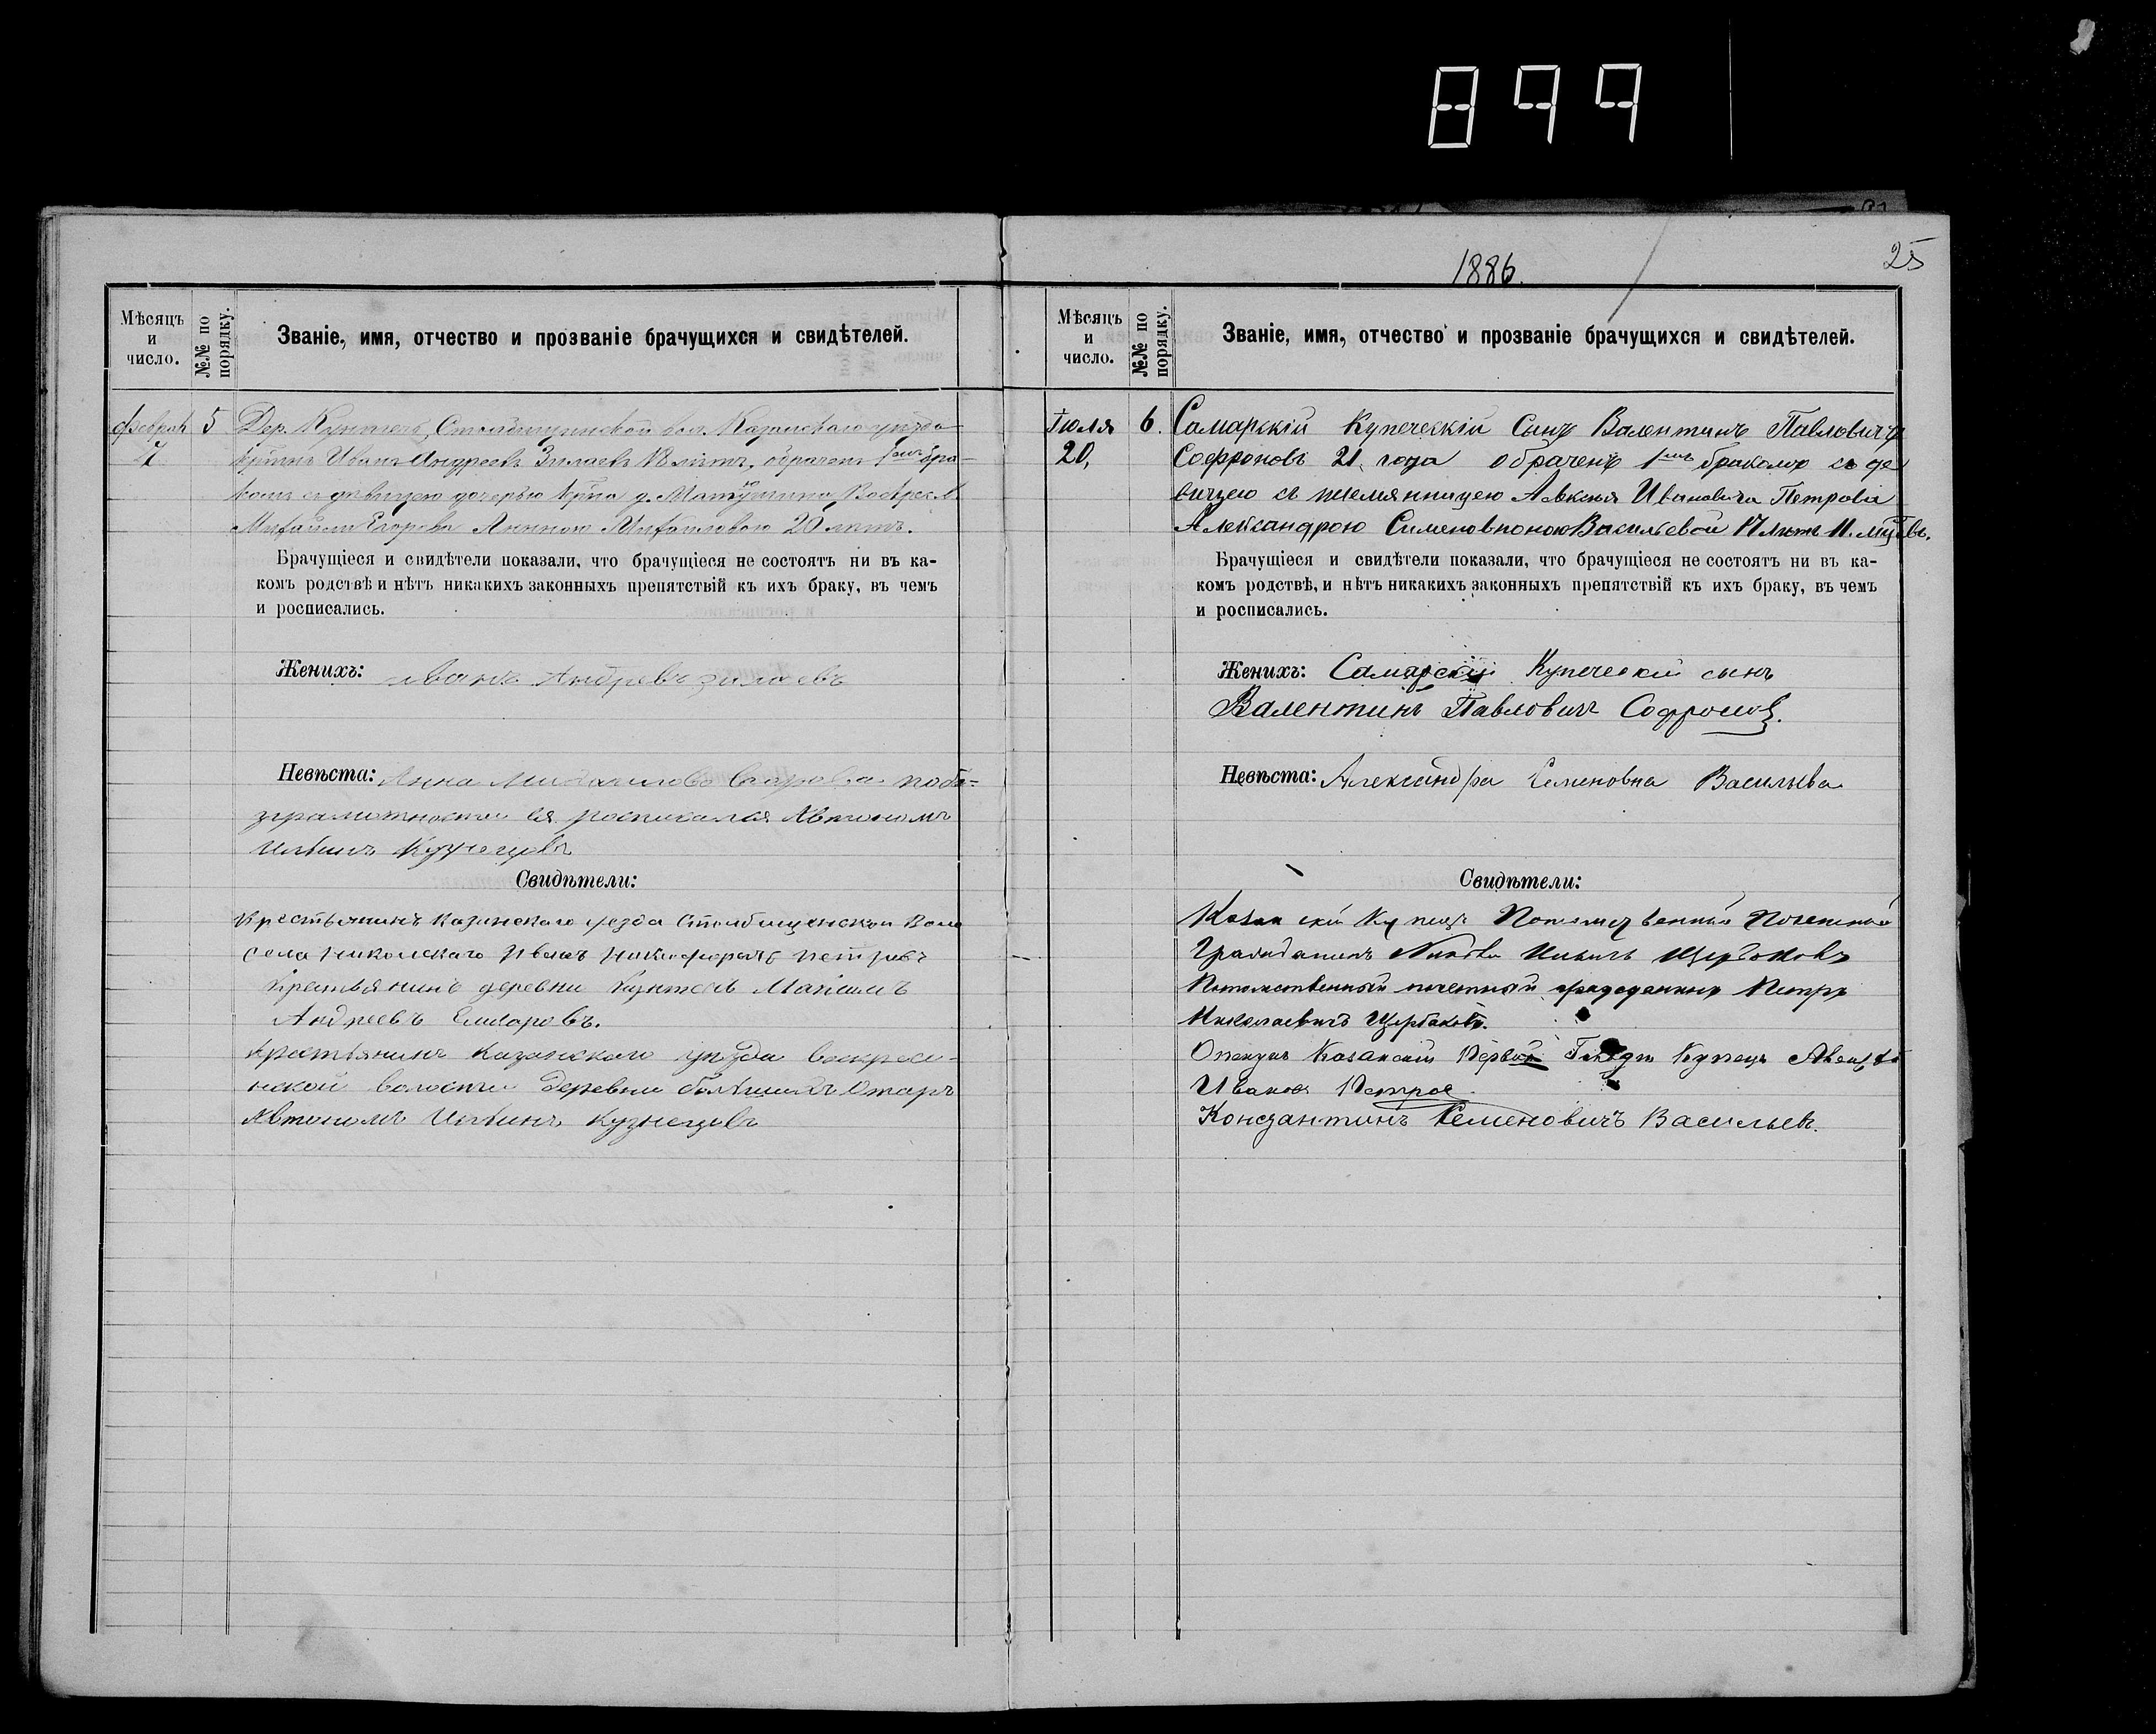 899
Мѣсяцъ и число.
№№ по порядку.
Званіе, имя, отчество и прозваніе брачущихся и свидѣтелей.
феврал 5 Дер. Столбищинской вол. Казанскаго уѣзда
7 Иванъ Андреевъ 18 лѣтъ, обрачен 1ымъ бра-
комъ съ дѣвицею дочерью д.
Егорова Анною Михайловою 20 лѣтъ.
Брачущіеся и свидѣтели показали, что брачущіеся не состоятъ ни въ ка-
комъ родствѣ и нѣтъ никакихъ законныхъ препятствій къ ихъ браку, въ чемъ
и росписались.
Женихъ: иванъ Андревъ
Невѣста: Анна по бѣ-
зграмотности ея росписался Автономъ
Ильинъ Кузнецовъ
Свидѣтели:
Крестьянинъ Казанскаго уезда Столбищенской Воло
села Никольскаго Иванъ Петровъ
Крестьянинъ деревни Кунтечь Максимъ
Андреевъ Елизаровъ.
Крестьянинъ Казанскаго уѣзда воскресе-
нской волости деревни большихъ Отаръ
Автономъ Ильинъ Кузнецовъ
1886.
25
Мѣсяцъ и число.
№№ по порядку.
Званіе, имя, отчество и прозваніе брачущихся и свидѣтелей.
Іюля 6. Самарскій Купеческій Сынъ Валентинъ Павловичъ
20, Софроновъ 21 года обраченъ 1ымъ бракомъ съ де
вицею съ племянницею Алексѣя Ивановича Петрова
Александрою Симеоновною Васильевой 17 лѣтъ 11 мцевъ.
Брачущіеся и свидѣтели показали, что брачущіеся не состоятъ ни въ ка-
комъ родствѣ, и нѣтъ никакихъ законныхъ препятствій къ ихъ браку, въ чемъ
и росписались.
Женихъ: Самарскій Купеческій сынъ
Валентинъ Павловичъ Софронов.
Невѣста: Александра Семеновна Васильева
Свидѣтели:
Казанскій Купецъ Потомственный Почетный
Гражданинъ Ильичъ Щербаковъ
Потомственный почетный гражданинъ Петръ
Николаевичъ Щербаковъ.
Опекунъ Казанскій Первой Гильдіи Купецъ Алексѣй
Иванов Петров
Константинъ Семеновичъ Васильевъ.